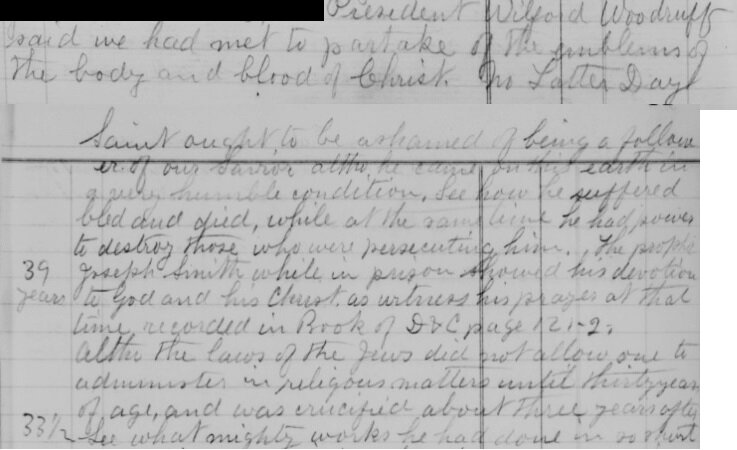 President Wilford Woodruff
said we had met to partake of the emblems of
the body and blood of Christ. No Latter Day
Saint ought, to be ashamed of being a follow
er of our Savior altho he came on this earth in
a very humble condition, See how he suffered
bled and died, while at the same time he had power
to destroy those who were persecuting him. The prophet
39 Joseph Smith while in prison showed his devotion
years to God and his Christ. as witness his prayer at that
time, recorded in Book of D&C page
Altho the laws of the Jews did not allow one to
administer in religious matters until thirty years
of age, and was crucified about three years after
33½ See what mighty works he had done in so short